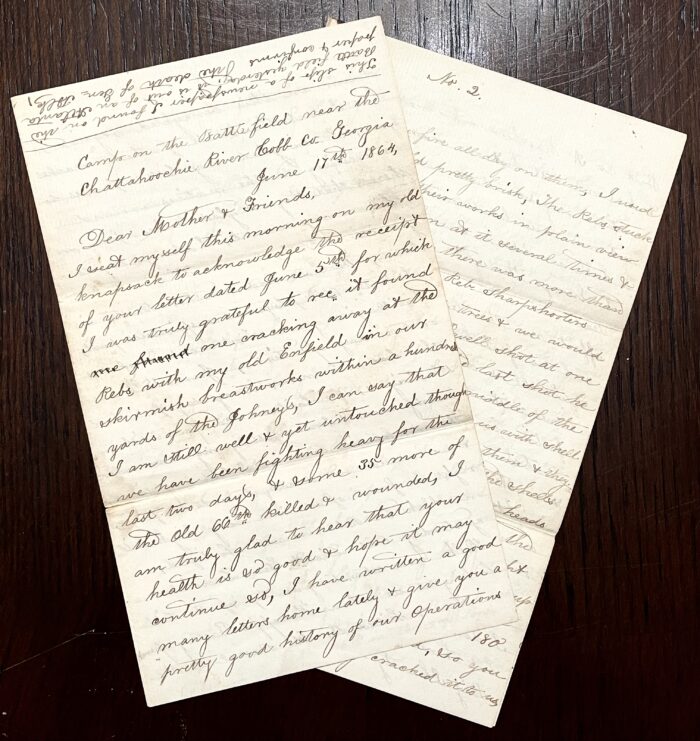 This slip of a newspaper I found on the
Battle field yesterday, it is out of an Atlanta
paper & confirms the death of Gen. Polk,
Camp on the Battlefield near the
Chattahoochie River Cobb Co. Georgia
June 17th 1864,
Dear Mother & Friends,
I seat myself this morning on my old
knapsack to acknowledge the receipt
of your letter dated June 5th for which
I was truly grateful to rec. it found
me cracking away at the
Rebs with my old Enfield in our
skirmish breastworks within a hundred
yards of the Johneys, I can say that
I am still well & yet untouched though
we have been fighting heavy for the
last two days, & some 35 more of
the Old 66th killed & wounded, I
am truly glad to hear that your
health is so good & hope it may
continue so, I have written a good
many letters home lately & give you a
pretty good history of our Operations
No. 2.
fire all day on them, I used
pretty brisk, The Rebs stuck
their works in plain view
at it several times &
there was more than
Reb Sharpshooters
trees & we would
well shot at one
last shot he
middle of the
us with shell
them & they
the shells
heads
the
up
180
, so you
cracked it to us,